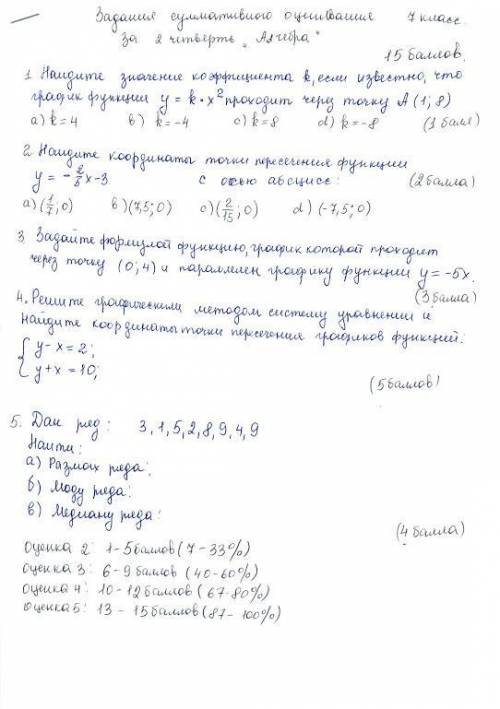 Задания суммативного оценивания 7 класс.
за 2 четверть „Алгебра“
15 баллов.
1 Найдите значение коэффициента k, если известно, что
график функции y = k·x² проходит через точку A (1; 8)
a) k = 4 b) k = -4 c) k = 8 d) k = -8 (1 балл)
2 Найдите координаты точки пересечения функции
y = -2/5x-3 с осью абсцисс: (2 балла)
a) (1/7; 0) b) (7,5; 0) c) (2/15; 0) d) (-7,5; 0)
3 Задайте формулой функцию, график которой проходит
через точку (0; 4) и параллелен графику функции y = -5x.
(3 балла)
4. Решите графическим методом систему уравнении и
найдите координаты точки пересечения графиков функций:
{ y - x = 2;
y + x = 10;
(5 баллов)
5. Дан ряд: 3, 1, 5, 2, 8, 9, 4, 9
Найти:
а) Размах ряда:
б) Моду ряда:
в) Медиану ряда:
(4 балла)
Оценка 2: 1-5 баллов (7-33%)
оценка 3: 6-9 баллов (40-60%)
оценка 4: 10-12 баллов (67-80%)
оценка 5: 13-15 баллов (87-100%)